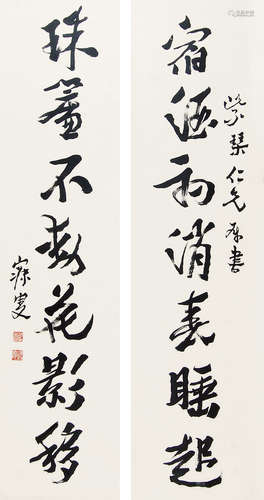 宿酒初消春睡起
紫琴仁兄屬書
珠簾不動花影移
寐叟